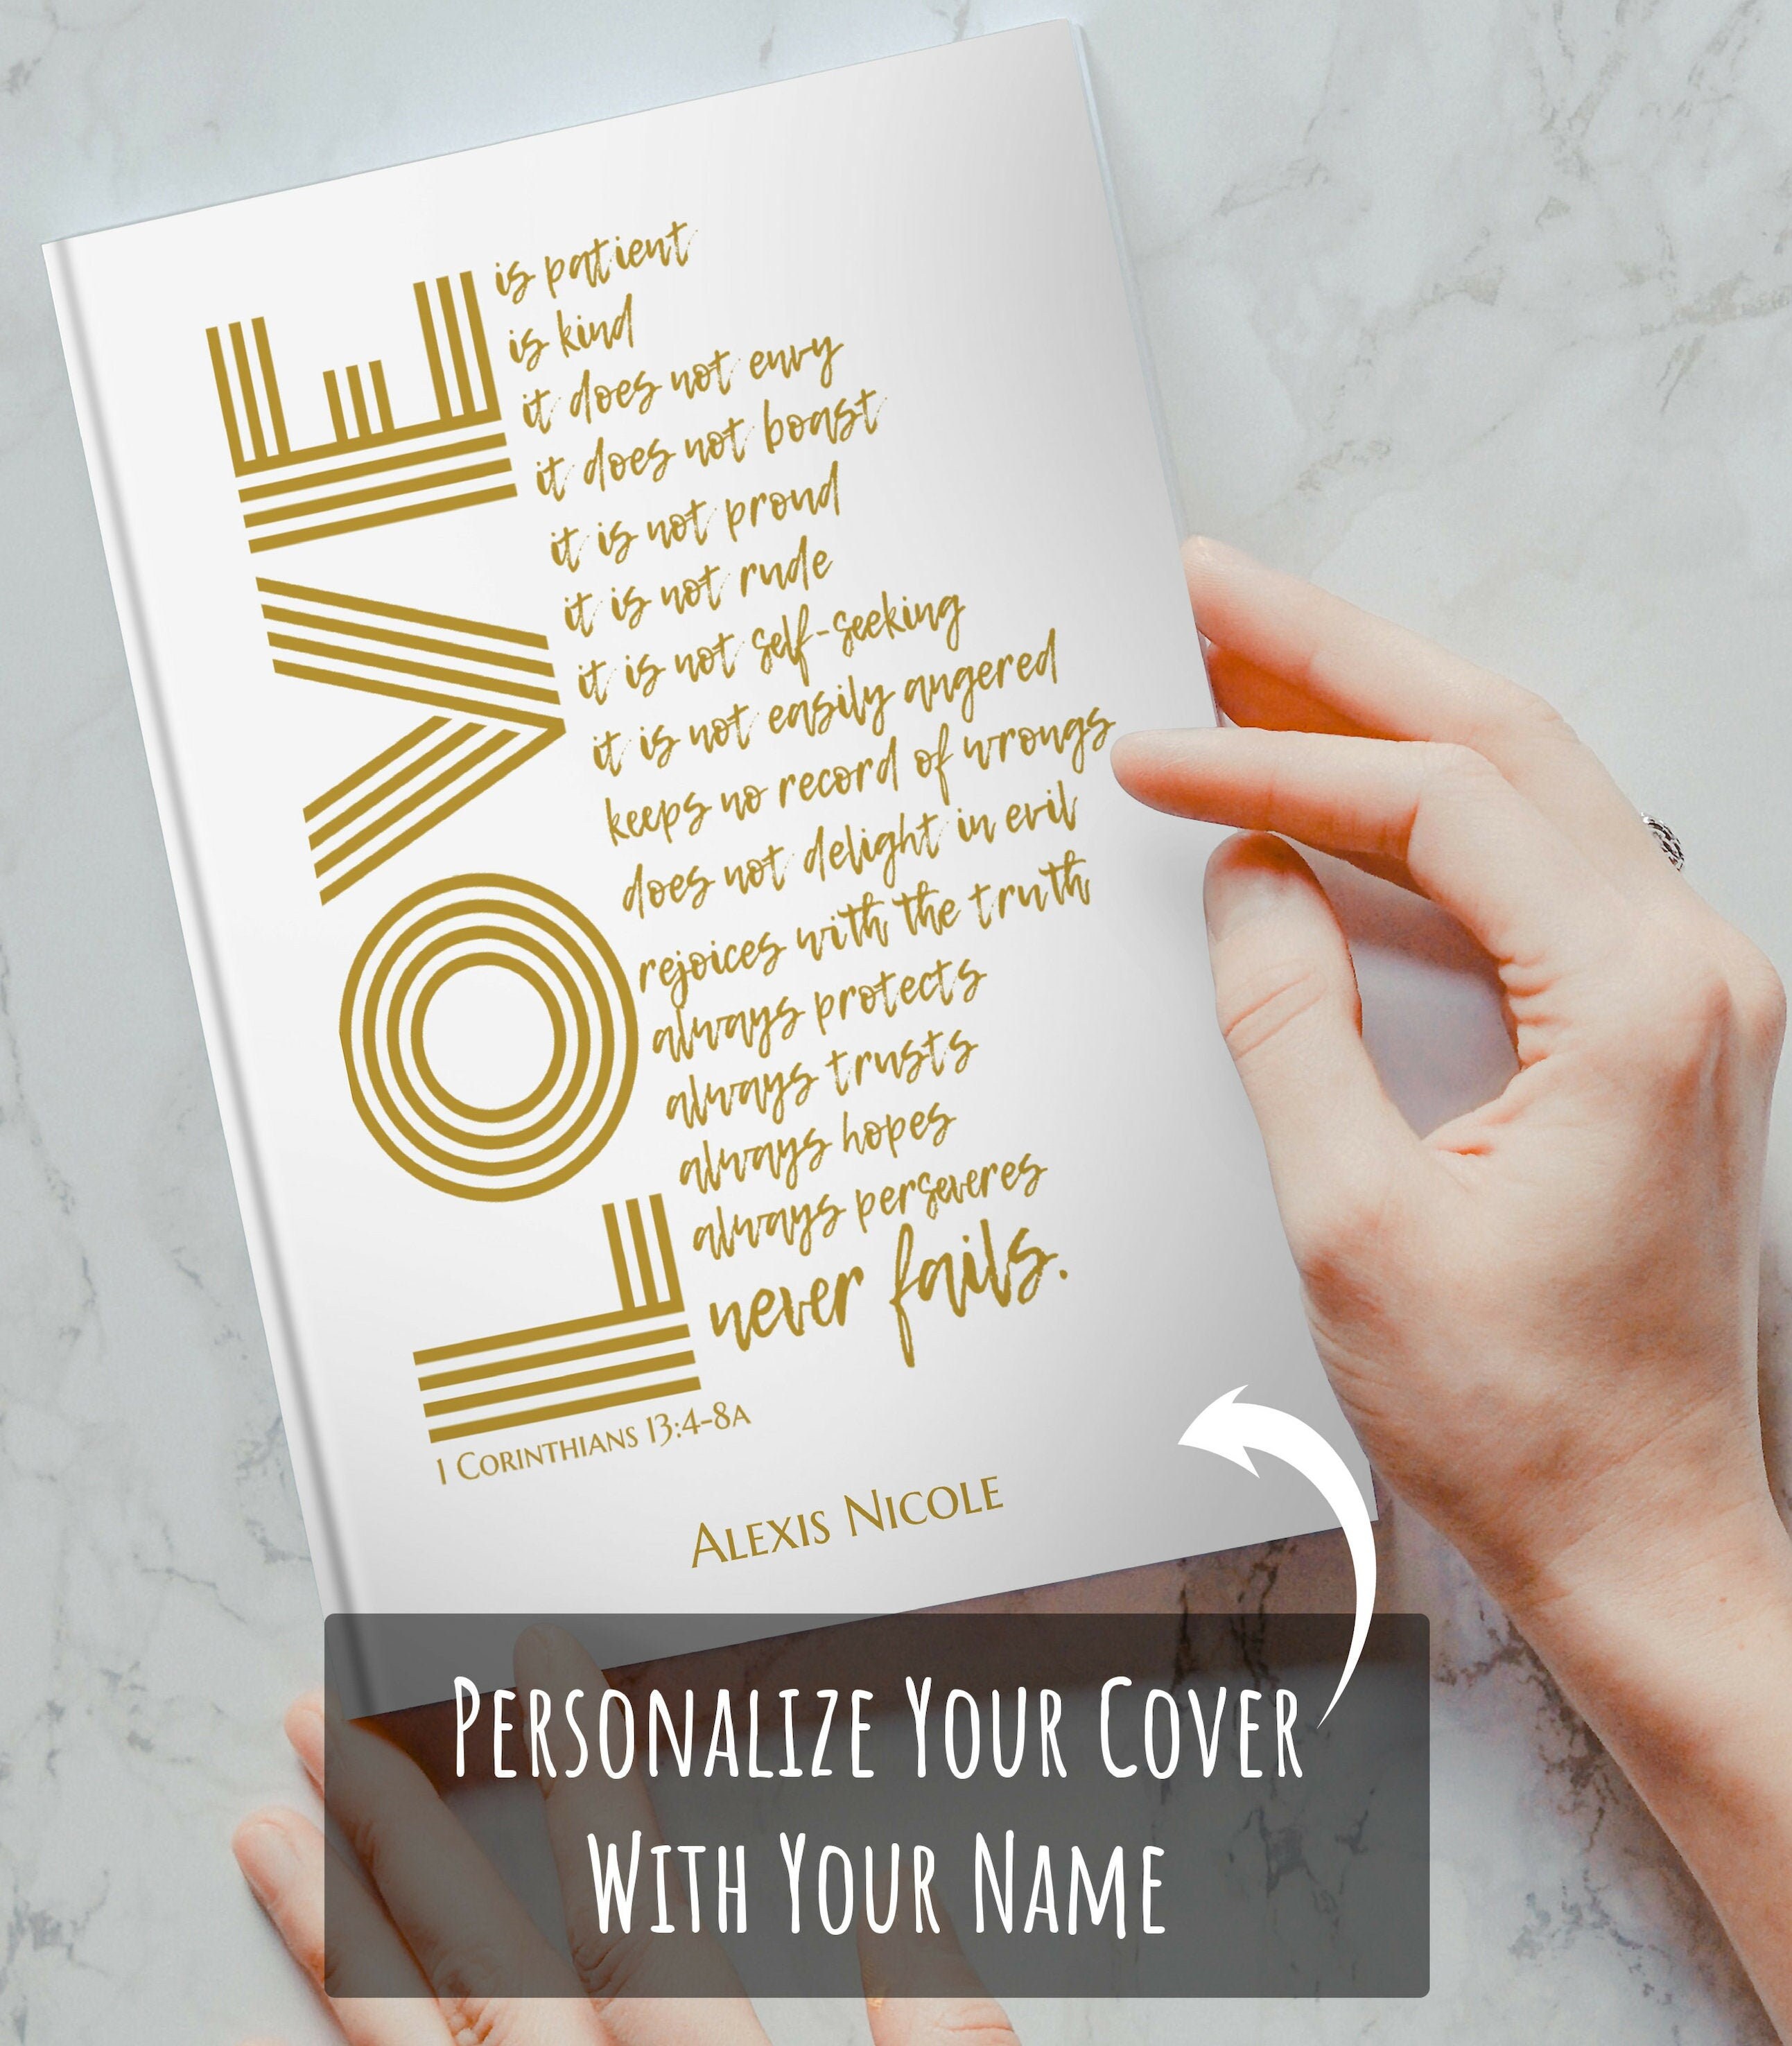 LOVE
is patient
is kind
it does not envy
it does not boast
it is not proud
it is not rude
it is not self-seeking
it is not easily angered
keeps no record of wrongs
does not delight in evil
rejoices with the truth
always protects
always trusts
always hopes
always perseveres
never fails.
1 Corinthians 13:4-8a
Alexis Nicole
Personalize Your Cover
With Your Name